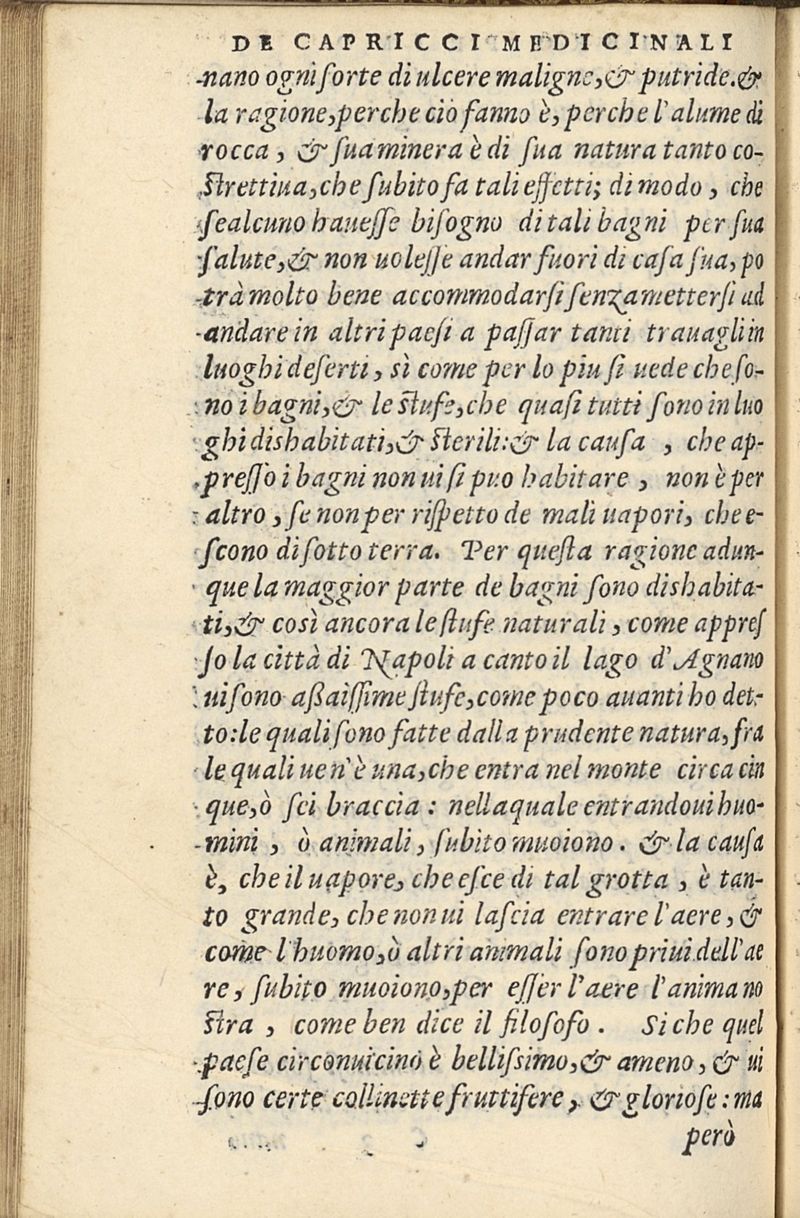 DE CAPRICCI MEDICINALI
nano ogni ſorte di ulcere maligne, & putride. &
la ragione, perche ciò fanno è, perche l'alume di
rocca, & ſua minera è di ſua natura tanto co-
ſtrettiua, che ſubito fa tali effetti; di modo, che
ſe alcuno haueſſe biſogno di tali bagni per ſua
ſalute, & non uoleſſe andar fuori di caſa ſua, po
trà molto bene accommodarſi ſenza metterſi ad
andare in altri paeſi a paſſar tanti trauagli in
luoghi deſerti, sì come per lo piu ſi uede che ſo-
no i bagni, & le ſtufe, che quaſi tutti ſono in luo
ghi dishabitati, & ſterili: & la cauſa, che ap-
preſſo i bagni non ui ſi puo habitare, non è per
altro, ſe non per riſpetto de mali uapori, che e-
ſcono di ſotto terra. Per queſta ragione adun-
que la maggior parte de bagni ſono dishabita-
ti, & così ancora le ſtufe naturali, come appreſ
ſo la città di Napoli a canto il lago d'Agnano
ui ſono aßaiſſime ſtufe, come poco auanti ho det-
to: le quali ſono fatte dalla prudente natura, fra
le quali ue n'è una, che entra nel monte circa cin
que, ò ſei braccia: nella quale entrandoui huo-
mini, ò animali, ſubito muoiono. & la cauſa
è, che il uapore, che eſce di tal grotta, è tan-
to grande, che non ui laſcia entrare l'aere, &
come l'huomo, ò altri animali ſono priui dell'ae
re, ſubito muoiono, per eſſer l'aere l'anima no
ſtra, come ben dice il filoſofo. Si che quel
paeſe circonuicino è belliſsimo, & ameno, & ui
ſono certe collinette fruttifere, & glorioſe: ma
però